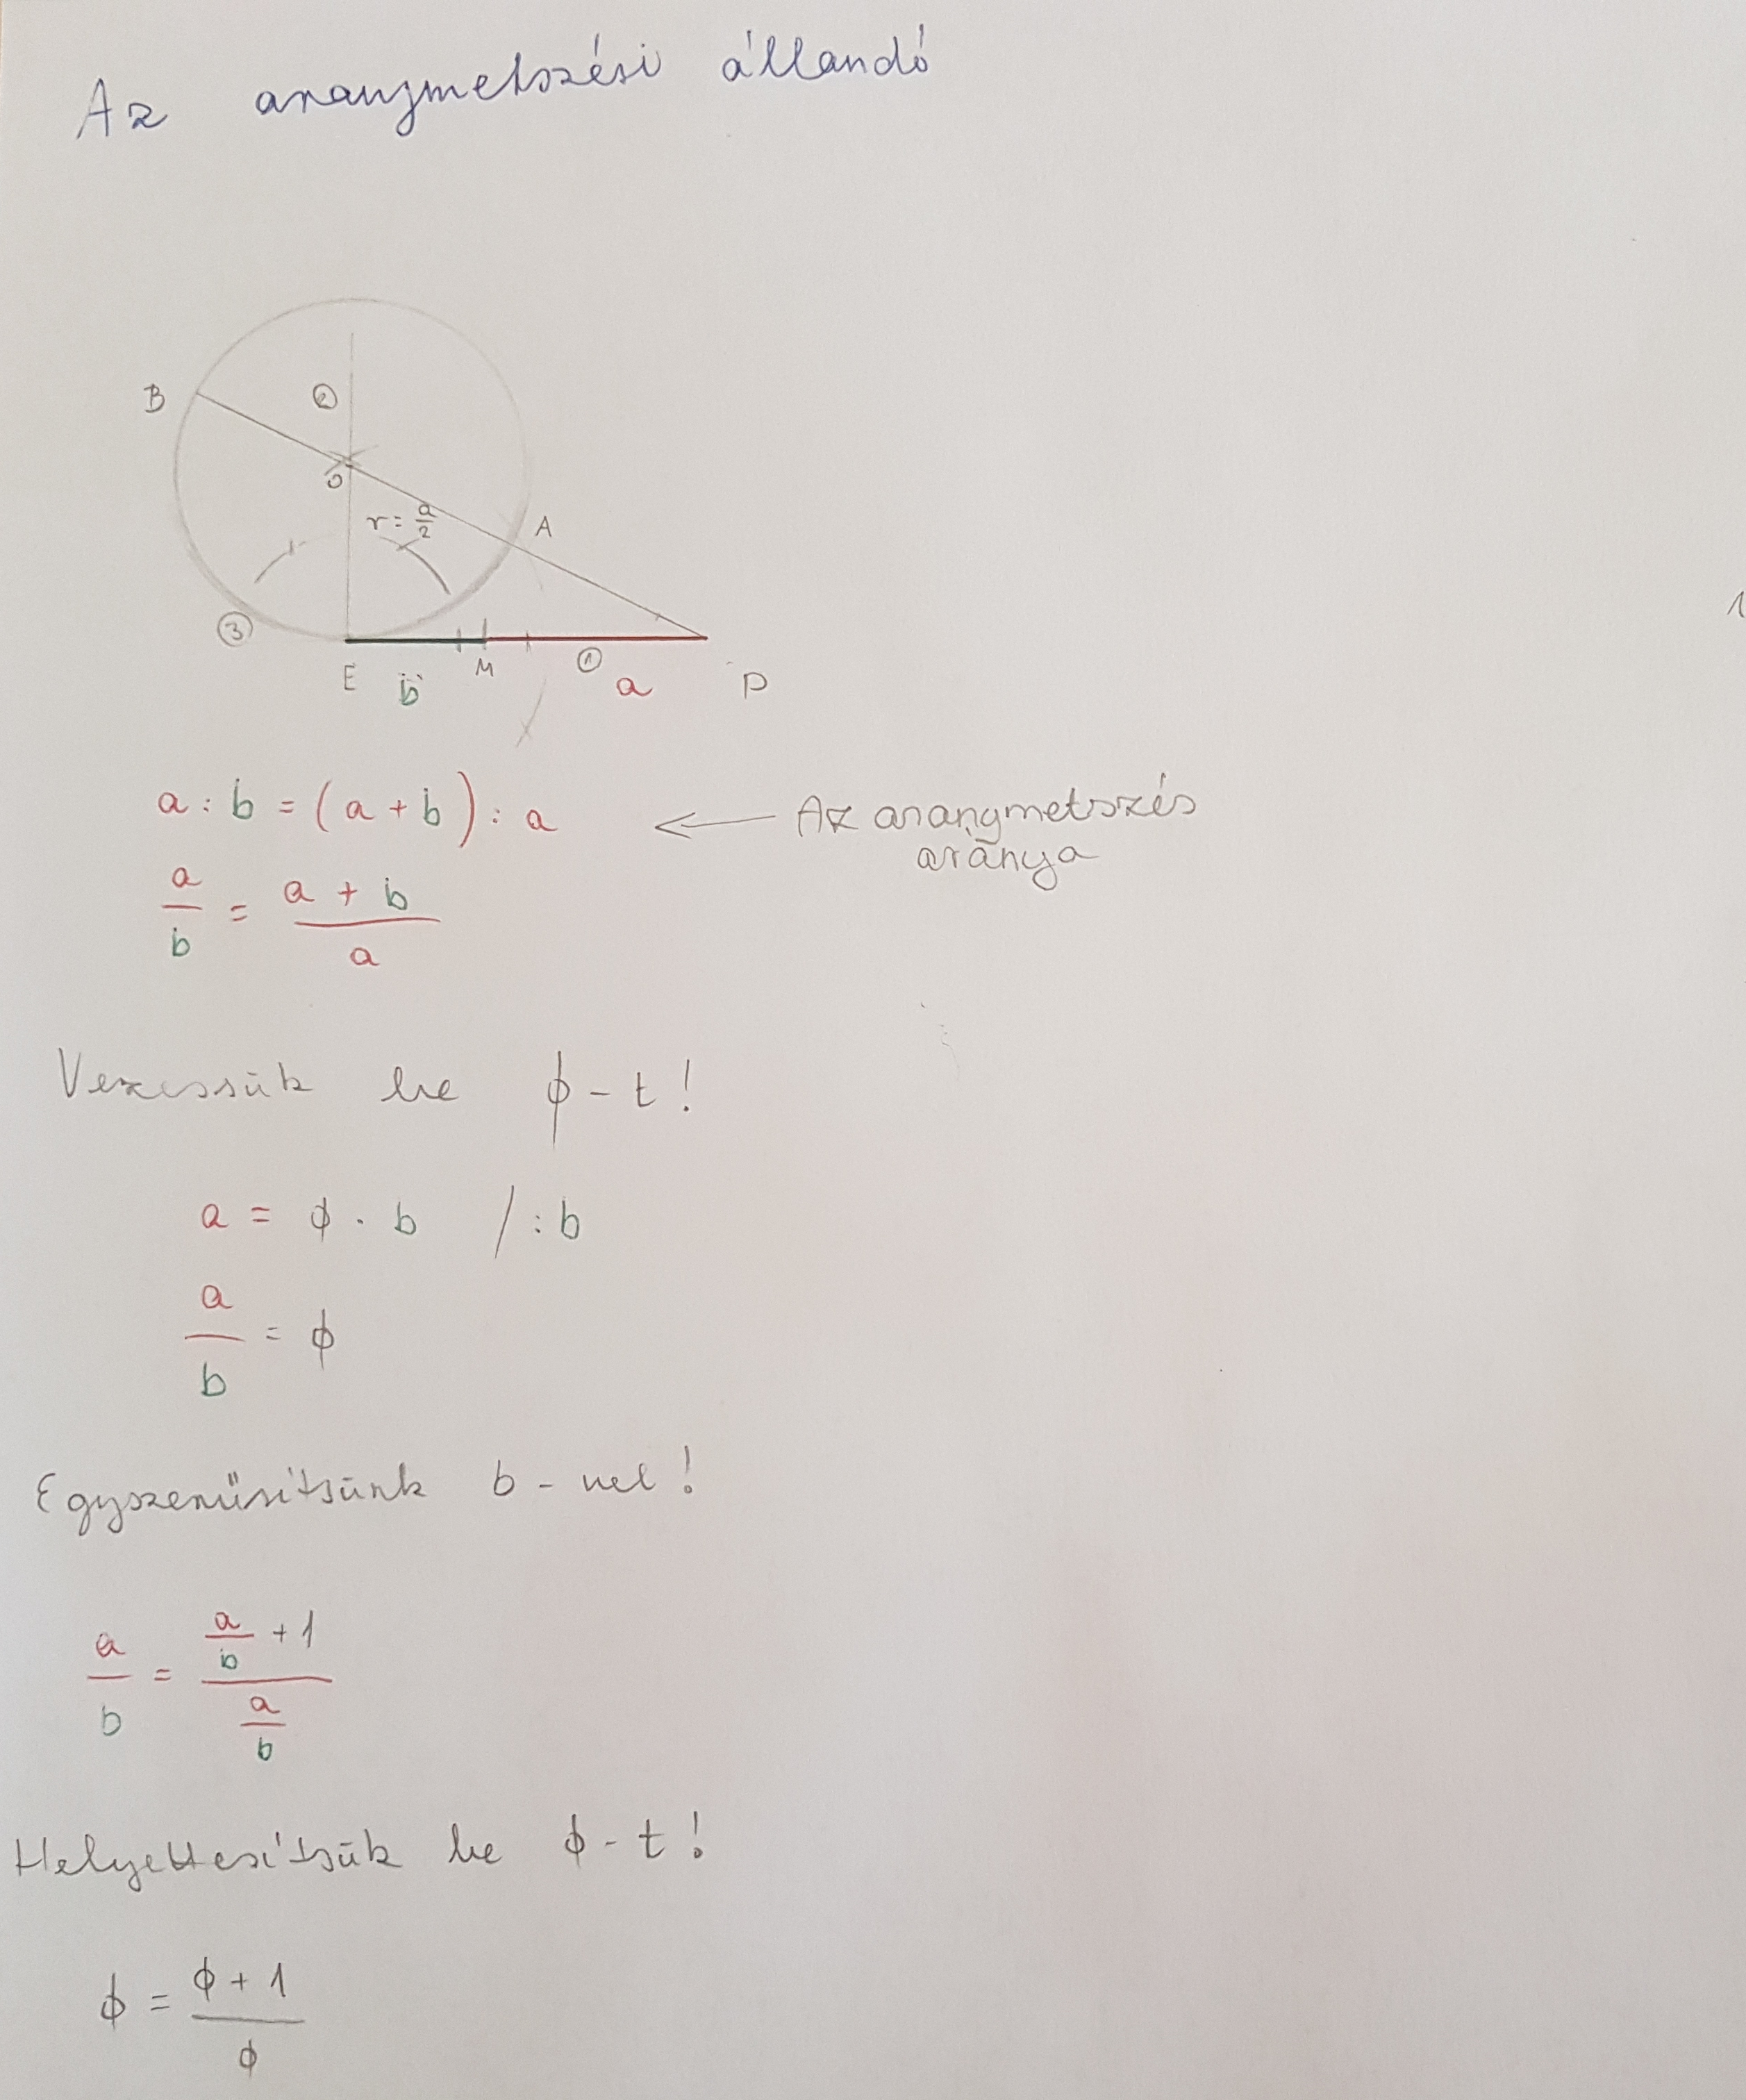 Az aranymetszési állandó
B
②
O
r = a/2
A
③
E
M
①
P
b
a
a : b = (a + b) : a
← Az aranymetszés
aránya
a/b = (a + b)/a
Vezessük be ϕ-t!
a = ϕ · b /:b
a/b = ϕ
Egyszerűsítsünk b-vel!
a/b = (a/b + 1)/(a/b)
Helyettesítsük be ϕ-t!
ϕ = (ϕ + 1)/ϕ
1